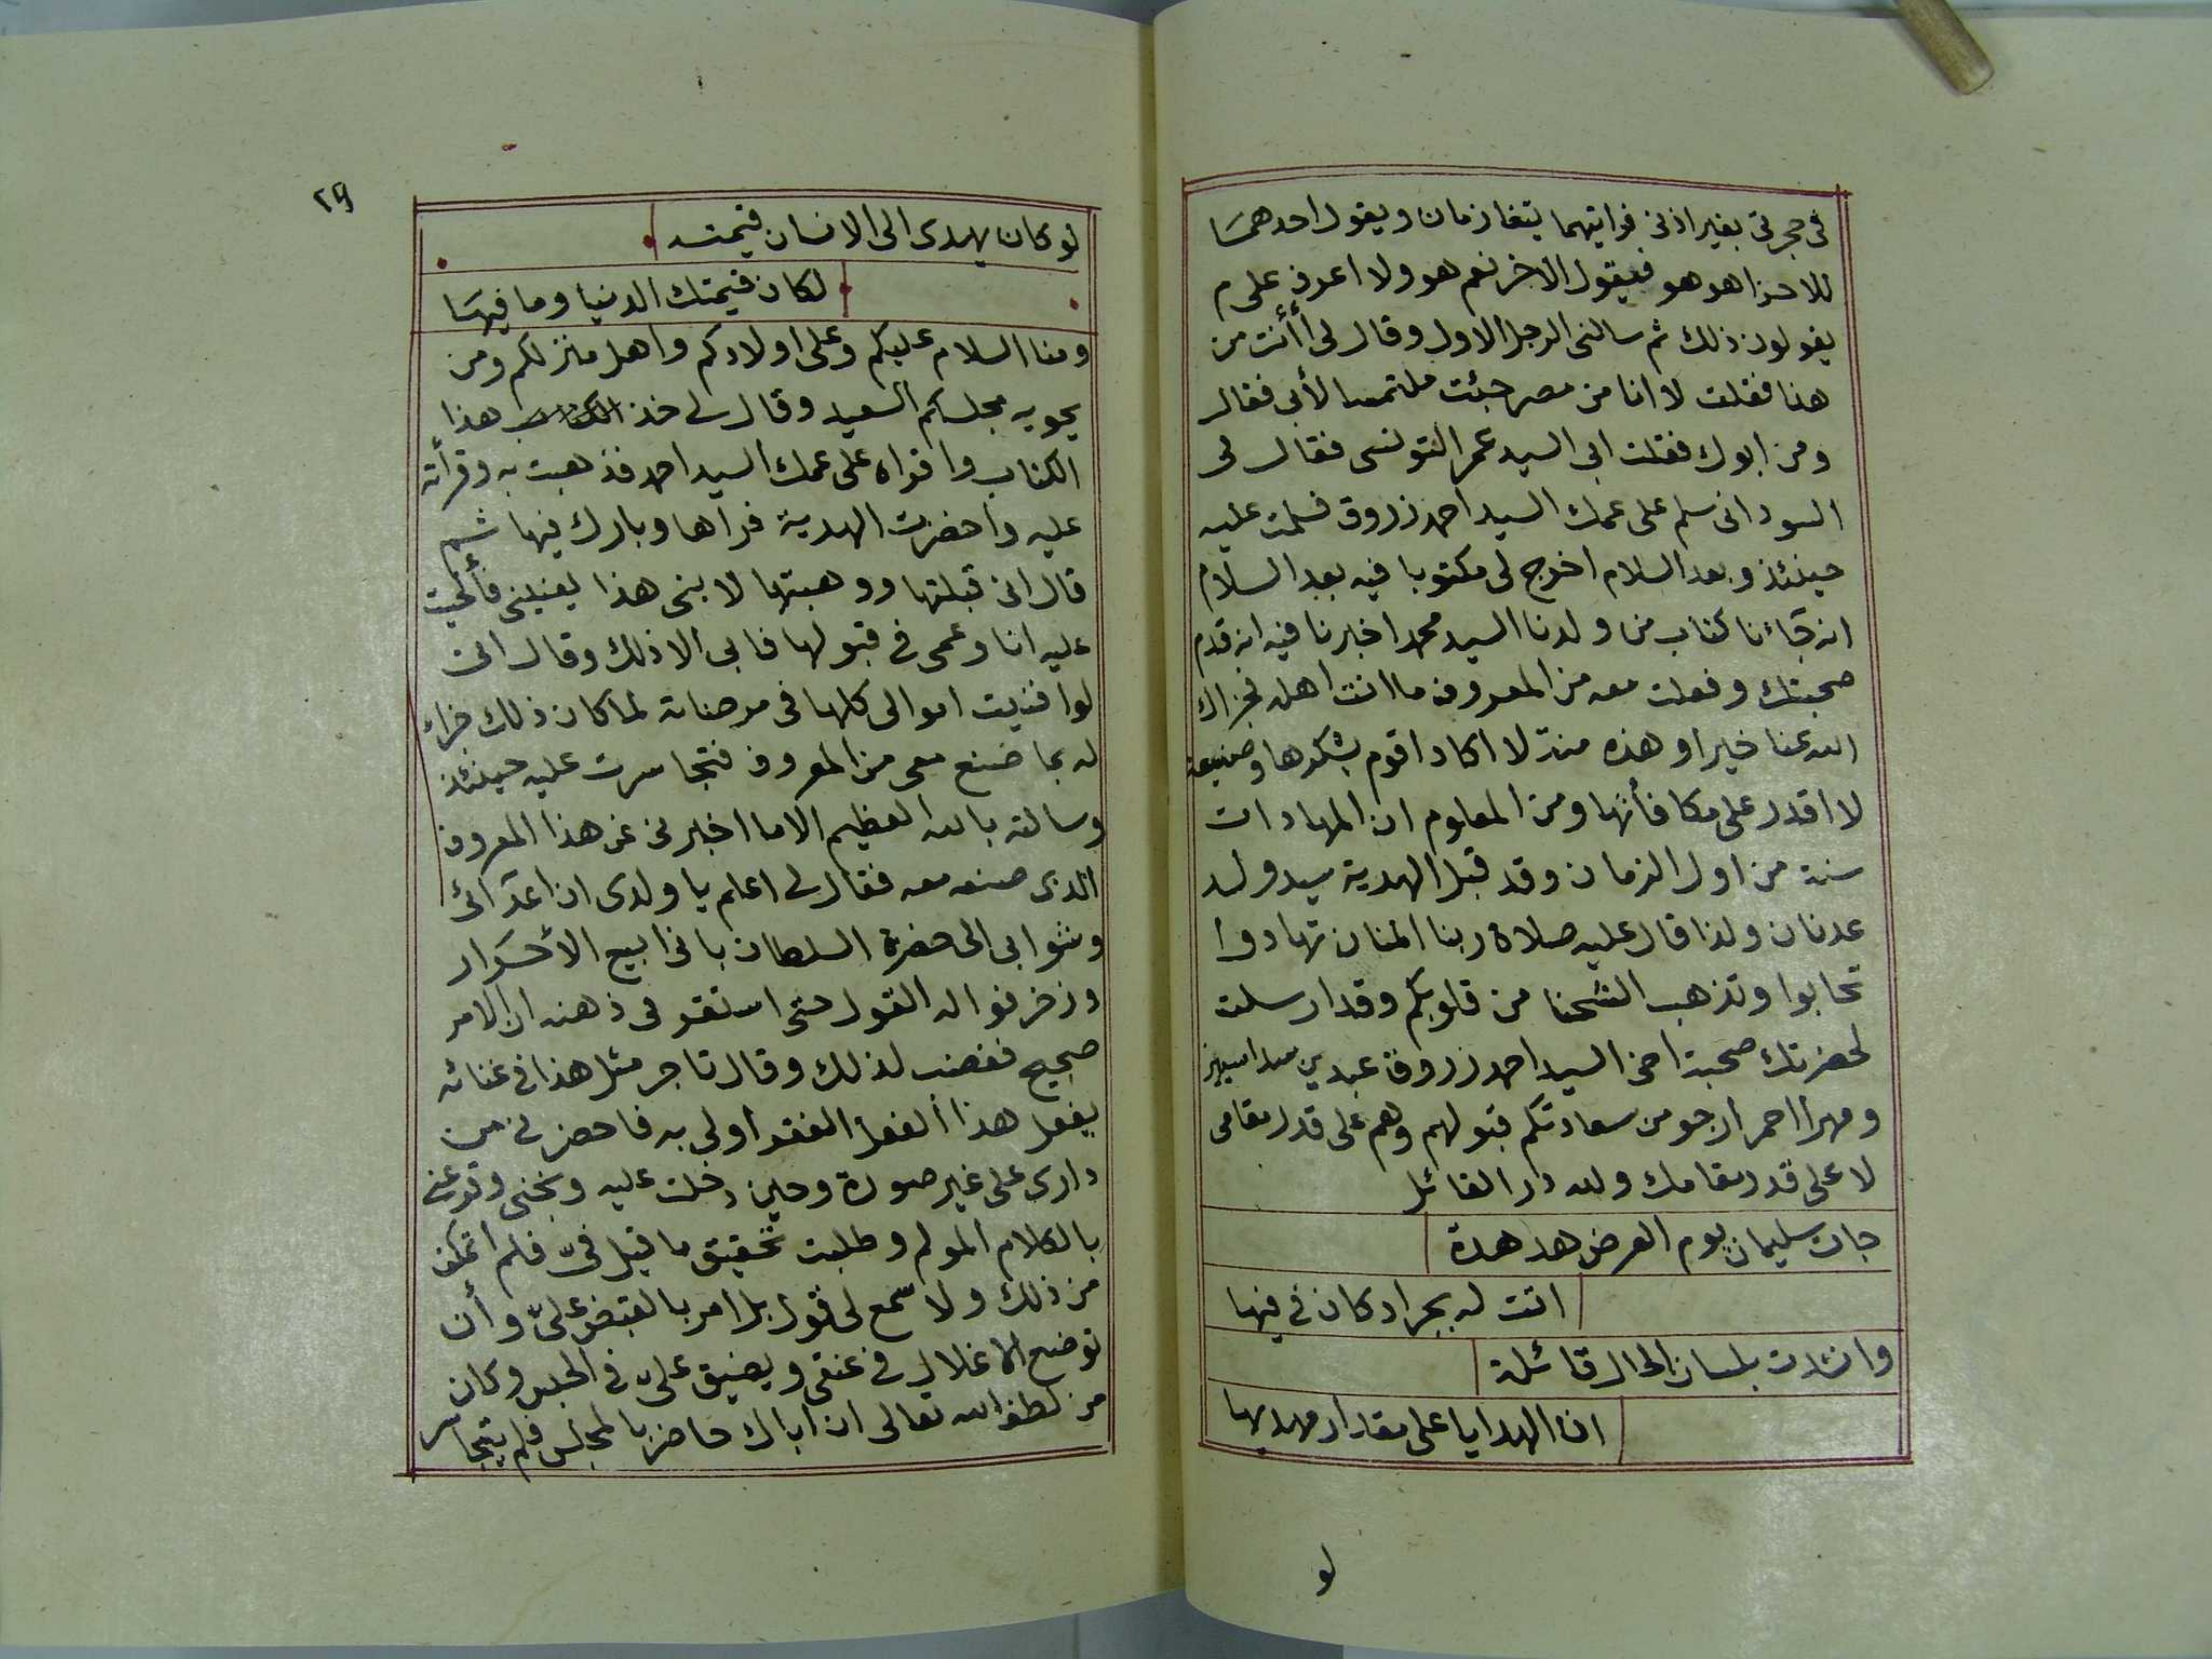 فى حجرتى بغير اذنى فرايتهما يتغامزان ويقول احدهما
للاخر اهو هو فيقول الاخر نعم هو ولا اعرف على م
يقولون ذلك ثم سالنى الرجل الاول وقال لى أأنت من
هنا فقلت لا وانا من مصر جئت ملتمسا لأبى فقال
ومن ابوك فقلت ابى السيد عمر التونسى فقال لى
السودانى سلم على عمك السيد احمد زروق فسلمت عليه
حينئذ وبعد السلام اخرج لى مكتوبا فيه بعد السلام
انه جاءنا كتاب من ولدنا السيد محمد اخبرنا فيه انه قدم
صحبتك وفعلت معه من المعروف ما انت اهله فجزاك
الله عنا خيرا وهذه منة لا اكاد اقوم بشكرها وصنيعة
لا اقدر على مكافأتها ومن المعلوم ان المهادات
سنة من اول الزمان وقد قبل الهدية سيد ولد
عدنان ولذا قال عليه صلاة ربنا المنان تهادوا
تحابوا وتذهب الشحنا من قلوبكم وقد ارسلت
لحضرتك صحبة اخى السيد احمد زروق عبدين سداسيين
ومهرا احمر ارجو من سعادتكم قبولهم وهم على قدر مقامى
لا على قدر مقامك ولله در القائل
جات سليمان يوم العرض هدهدة
اتت له بجراد كان فى فيها
وانشدت بلسان الحال قائلة
ان الهدايا على مقدار مهديها
لو
٢٩
لو كان يهدى الى الانسان قيمته
لكان قيمتك الدنيا وما فيها
ومنا السلام عليكم وعلى اولادكم واهل منزلكم ومن
يحويه مجلسكم السعيد وقال لى خذ هذا
الكتاب واقراه على عمك السيد احمد فذهبت به وقرأته
عليه واحضرت الهدية فراها وبارك فيها ثم
قال انى قبلتها ووهبتها لابنى هذا يعنينى فألحيت
عليه انا وعمى فى قبولها فابى الا ذلك وقال انى
لو افنيت اموالى كلها فى مرضاته لما كان ذلك جزاء
له بما صنع معى من المعروف فتجاسرت عليه حينئذ
وسالته بالله العظيم الا ما اخبرنى عن هذا المعروف
الذى صنعه معه فقال لى اعلم يا ولدى ان اعدائى
وشوا بى الى حضرة السلطان بانى ابيع الأحرار
وزخرفوا له القول حتى استقر فى ذهنه ان الامر
صحيح فغضب لذلك وقال تاجر مثل هذا فى غنائه
يفعل هذا الفعل الفقر أولى به فاحضرنى من
دارى على غير صورة وحين دخلت عليه وبخنى وقرعنى
بالكلام المولم وطلبت تحقيق ما قيل فىّ فلم اتمكن
من ذلك ولا سمع لى قول بل امر بالقبض علىّ وأن
توضع الاغلال فى عنقى ويضيق علىّ فى الحبس وكان
من لطف الله تعالى ان اباك حاضر بالمجلس فلم يتجاسر